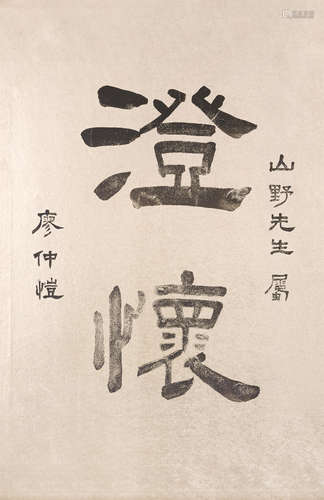 山野先生屬
澄懷
廖仲愷